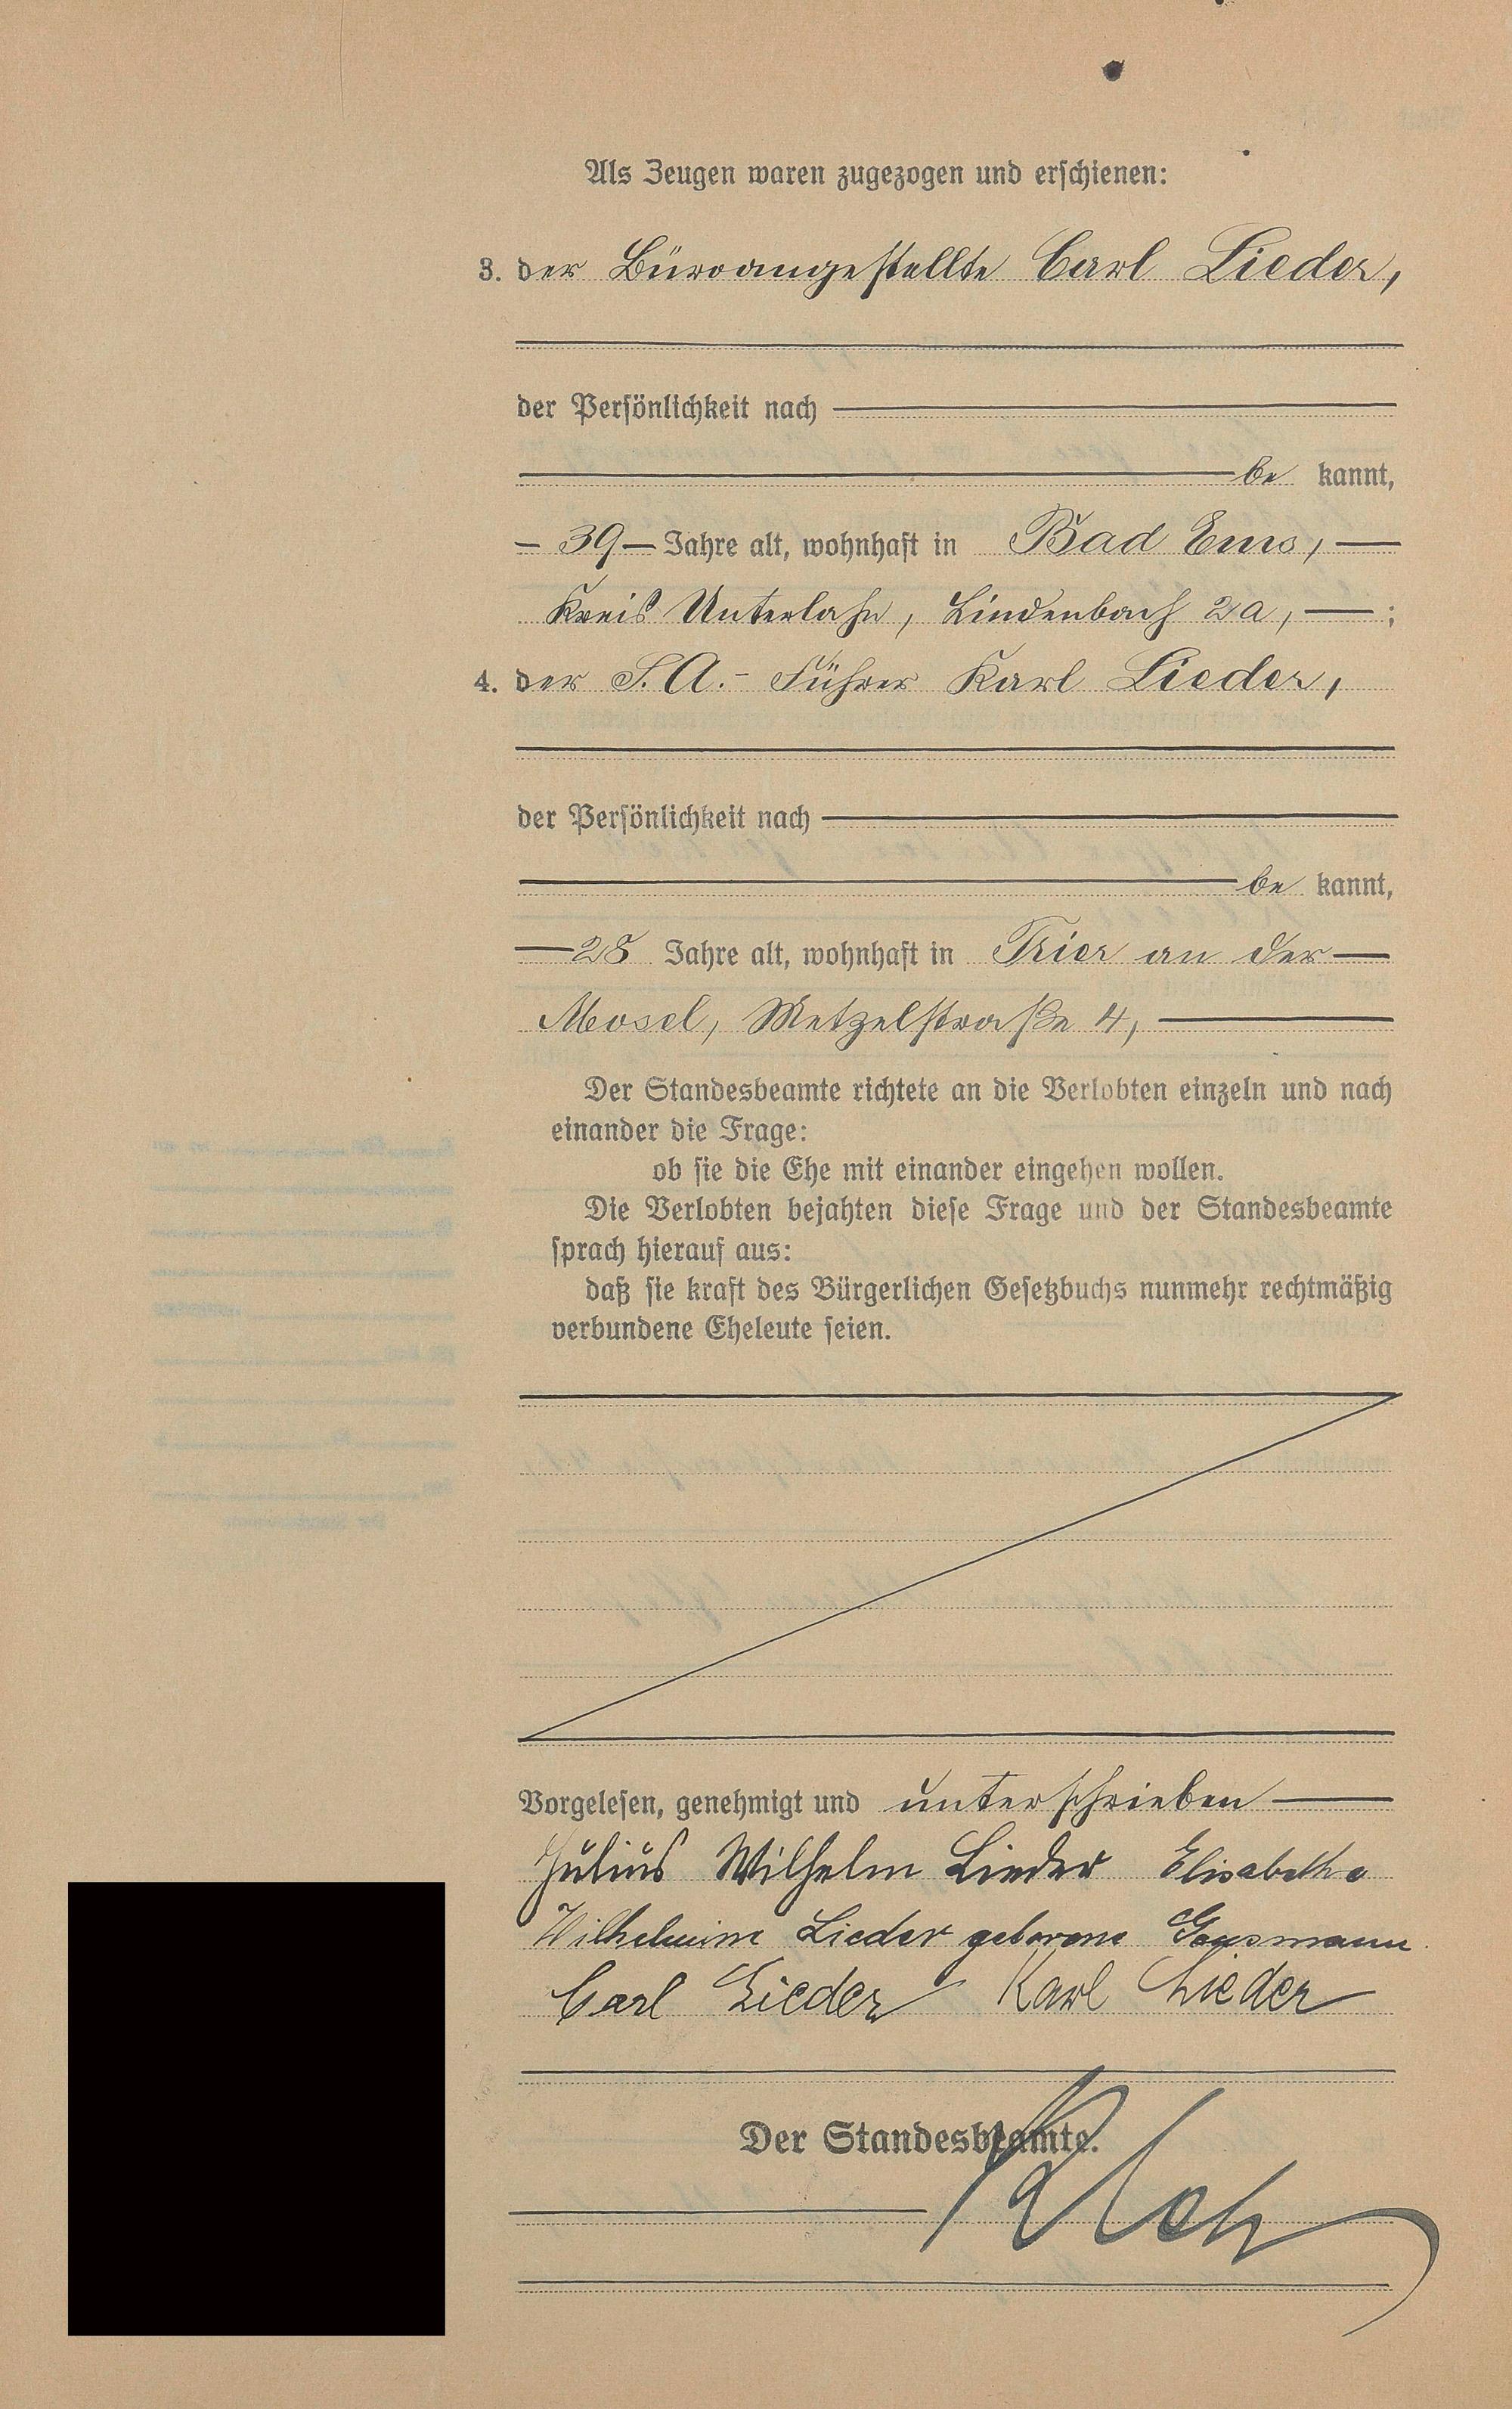 Als Zeugen waren zugezogen und erschienen:
3. der Büroangestellte Carl Lieder,
der Persönlichkeit nach
be kannt,
39 Jahre alt, wohnhaft in Bad Ems,
Kreis Unterlahn, Lindenbach 2a, ;
4. der S.A.- Führer Karl Lieder,
der Persönlichkeit nach
be kannt,
28 Jahre alt, wohnhaft in Trier an der
Mosel, Metzelstraße 4,
Der Standesbeamte richtete an die Verlobten einzeln und nach
einander die Frage:
ob sie die Ehe mit einander eingehen wollen.
Die Verlobten bejahten diese Frage und der Standesbeamte
sprach hierauf aus:
daß sie kraft des Bürgerlichen Gesetzbuchs nunmehr rechtmäßig
verbundene Eheleute seien.
Vorgelesen, genehmigt und unterschrieben
Julius Wilhelm Lieder Elisabetha
Wilhelmine Lieder geborene
Carl Lieder Karl Lieder
Der Standesbeamte.